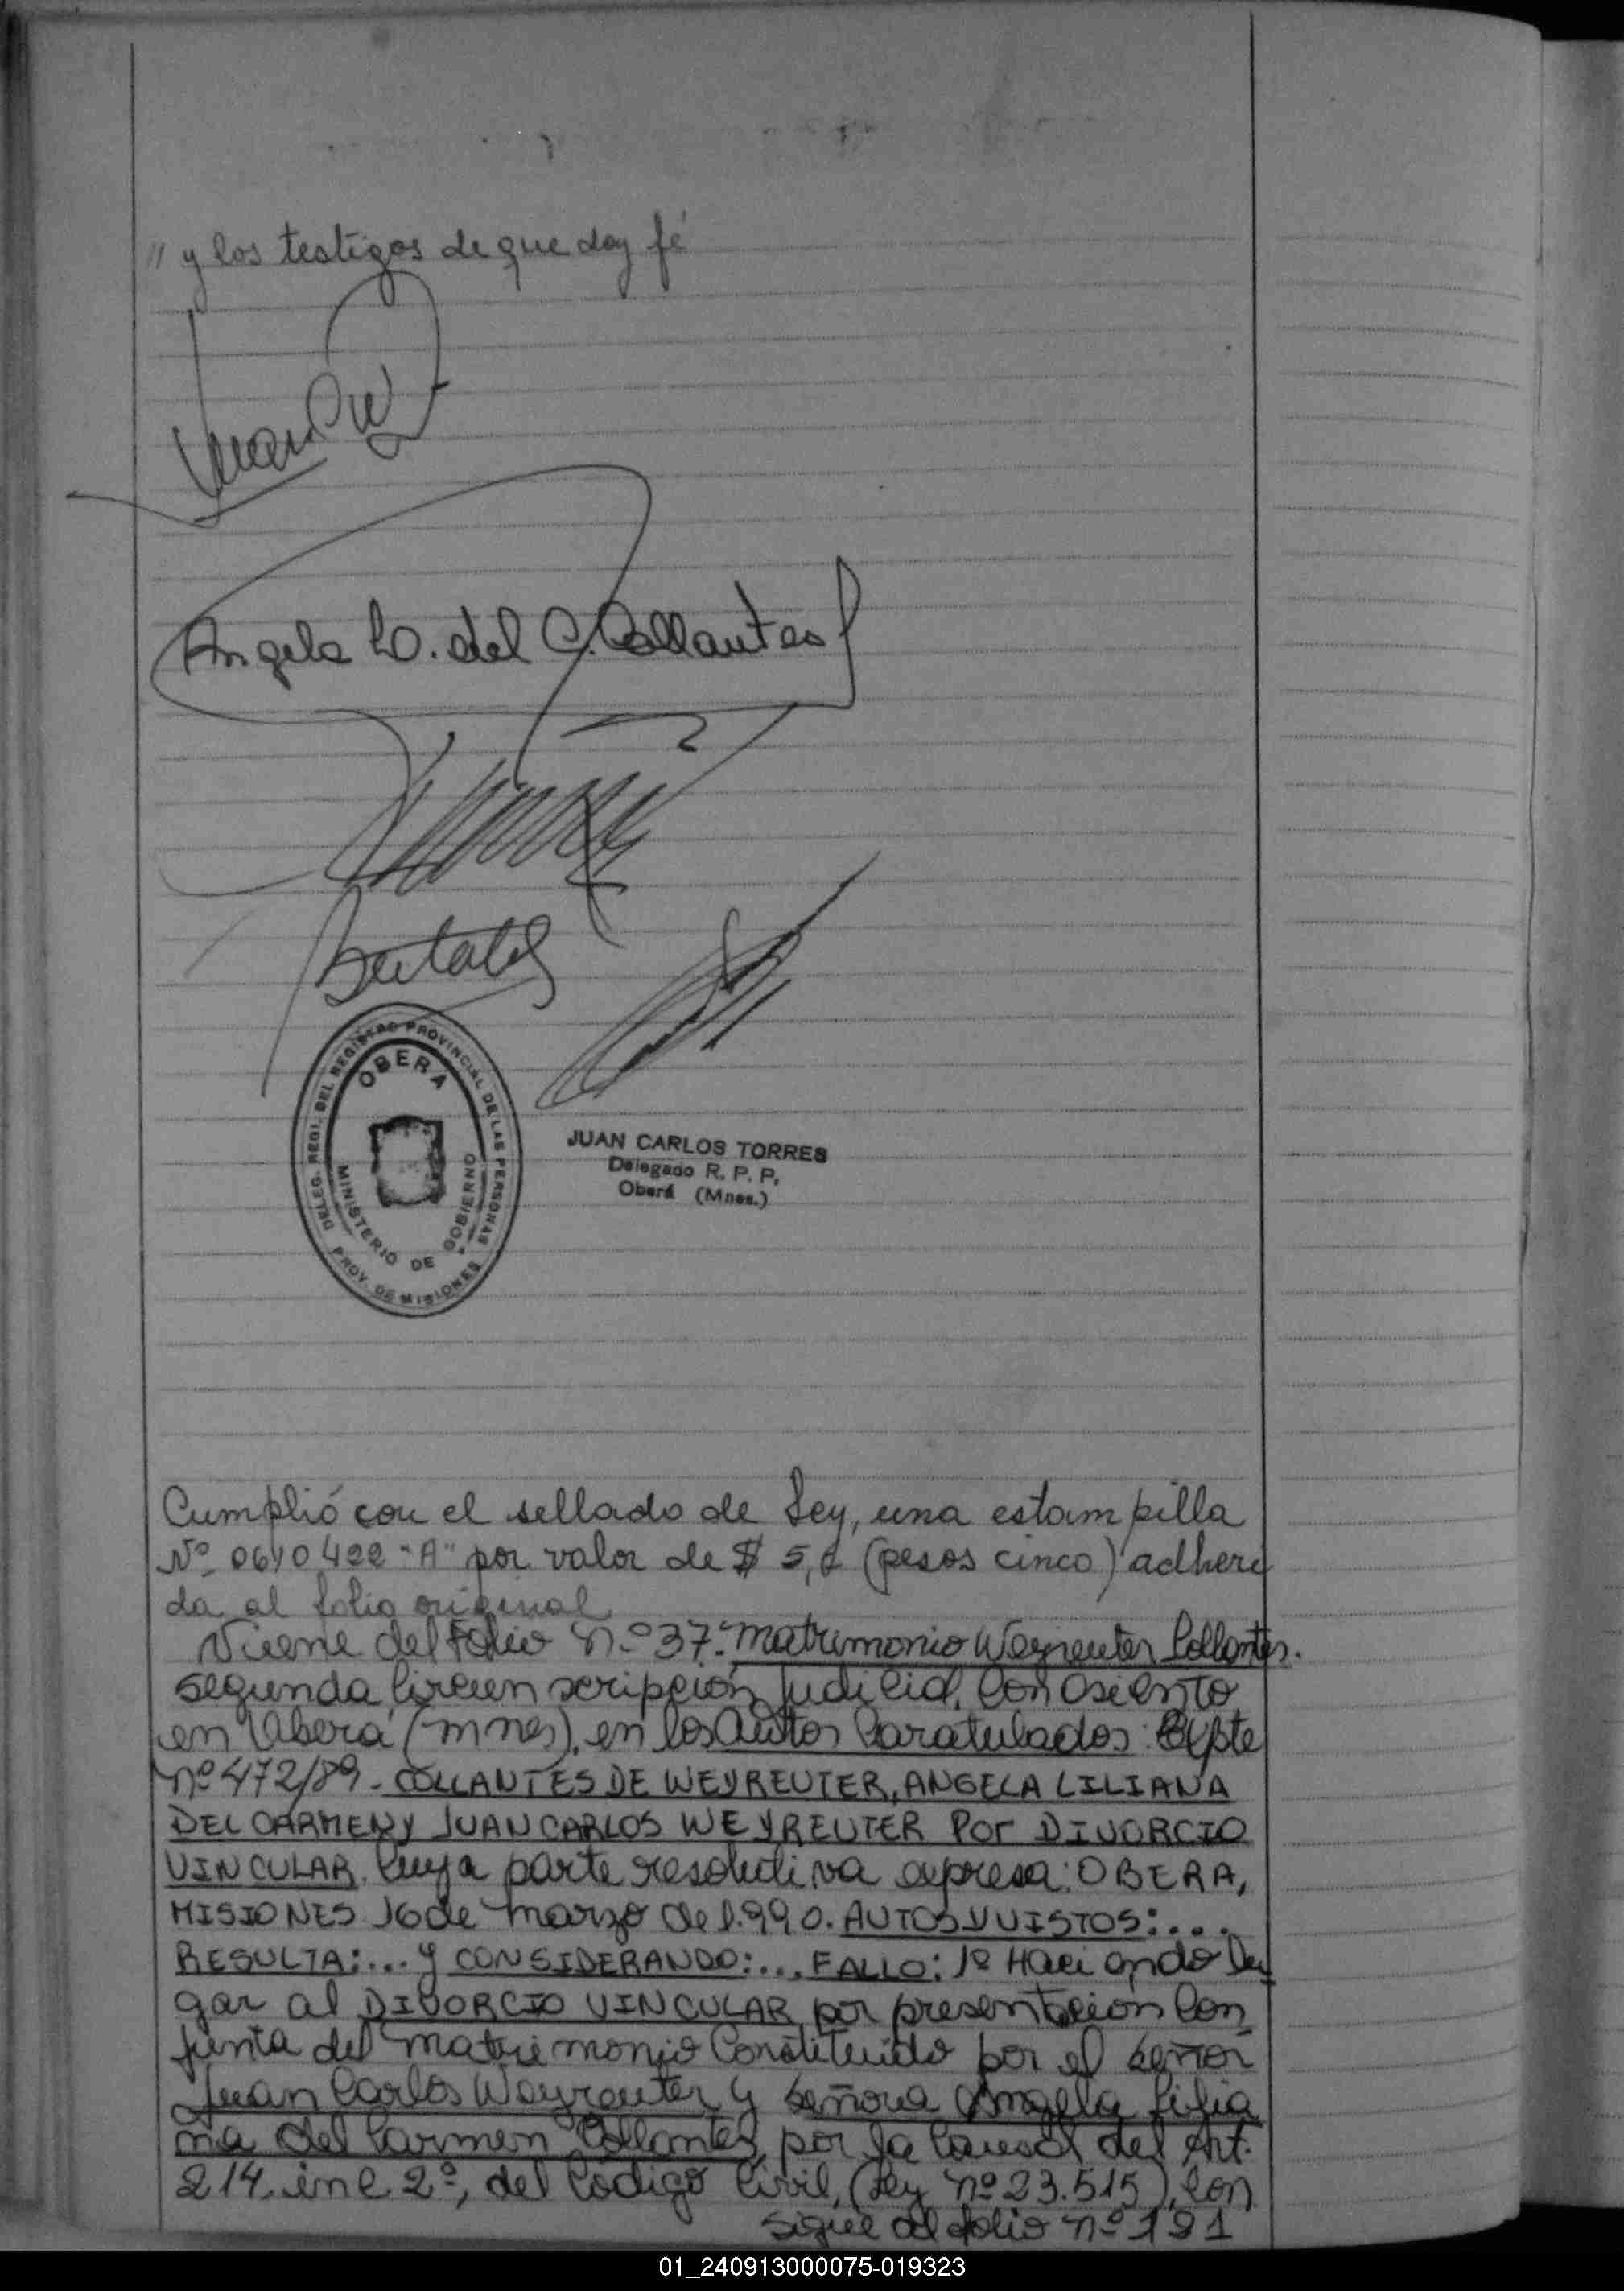 " y los testigos de que doy fé
Angela L. del C. Collantes
DELEG. REGI. DEL REGISTRO PROVINCIAL DE LAS PERSONAS
OBERA
MINISTERIO DE GOBIERNO
PROV. DE MISIONES
JUAN CARLOS TORRES
Delegado R. P. P.
Oberá (Mnes.)
Cumplió con el sellado de Ley, una estampilla
Nº 0610422 "A" por valor de $ 5, (pesos cinco) adheri
da al folio original
Viene del Folio Nº 37. Matrimonio Weyreuter Collantes.
segunda Circunscripción Judicial, Con Asiento
en Oberá (Mnes), en los Autos Caratulados: Expte
Nº 472/89 - COLLANTES DE WEYREUTER, ANGELA LILIANA
DEL CARMEN Y JUAN CARLOS WEYREUTER Por DIVORCIO
VINCULAR. Cuya parte resolutiva expresa: OBERA,
MISIONES 16 de Marzo de 1.990. AUTOS Y VISTOS: ...
RESULTA: ... y CONSIDERANDO: ... FALLO: 1º Haciendo lu
gar al DIVORCIO VINCULAR por presentación Con
junta del Matrimonio Constituido por el Señor
Juan Carlos Weyreuter y Señora Angela Lilia
na del Carmen Collantes, por la Causal del Art.
214, inc 2º, del Código Civil, (Ley Nº 23.515), Con
Sigue al folio Nº 191
01_240913000075-019323